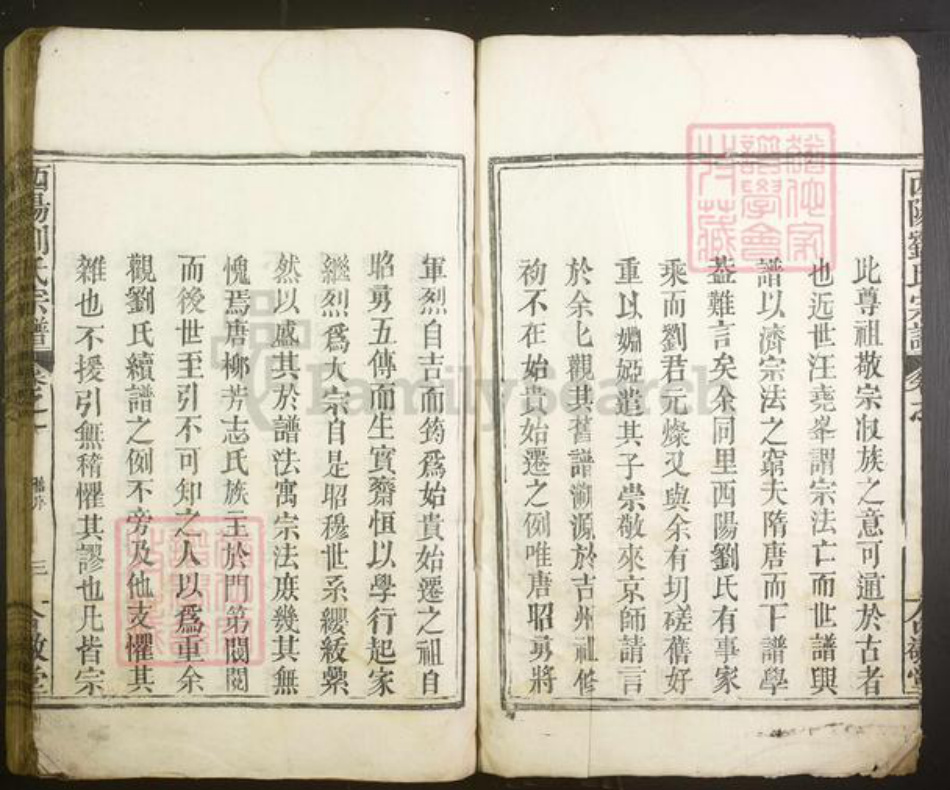 此尊祖敬宗收族之意可適於古者
也近世汪堯峯謂宗法亡而世譜興
譜以濟宗法之窮夫隋唐而下譜學
葢難言矣余同里西陽劉氏有事家
乘而劉君元燦又與余有切磋舊好
重以婣婭遣其子崇敬來京師請言
於余七觀其舊譜溯源於吉州祖修
礿不在始貴始遷之例唯唐昭勇將
軍烈自吉而筠爲始貴始遷之祖自
昭勇五傳而生實齋恒以學行起家
繼烈爲大宗自是昭穆世系纓紱縈
然以感其於譜法寓宗法庶幾其無
愧焉唐柳芳志氏族主於門第閥閱
而後世至引不可知之人以爲重余
觀劉氏續譜之例不旁及他支懼其
雜也不援引無稽懼其謬也凡皆宗
西陽劉氏宗譜
卷之
三
合敬堂
FamilySearch